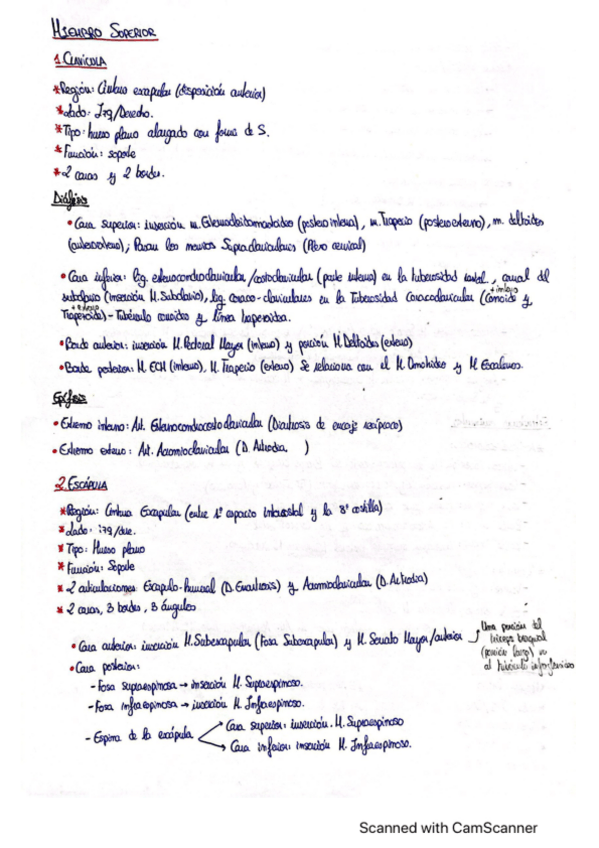 MIEMBRO SUPERIOR
1. CLAVÍCULA
* Región: Cintura escapular (disposición anterior)
* Lado: Izq/Derecho.
* Tipo: hueso plano alargado con forma de S.
* Función: soporte
* 2 caras y 2 bordes.
Diáfisis
• Cara superior: inserción m. Esternocleidomastoideo (posterointerna), m. Trapecio (posteroexterno), m. deltoides
(anteroexterno); Pasan los nervios Supraclaviculares (Plexo cervical)
• Cara inferior: lig. esternocondroclavicular/costoclavicular (parte interna) en la tuberosidad costal, canal del
subclavio (inserción M. Subclavio), lig. coraco-claviculares en la Tuberosidad Coracoclavicular (Conoide y
+ interno
Trapezoide) - Tubérculo conoideo y línea trapezoidea.
+ externo
• Borde anterior: inserción M. Pectoral Mayor (interno) y porción M. Deltoides (externo)
• Borde posterior: M. ECM (interno), M. Trapecio (externo) Se relaciona con el M. Omohideo y M. Escalenos.
Epífisis
• Extremo interno: Art. Esternocondrocostoclavicular (Diartrosis de encaje recíproco)
• Extremo externo: Art. Acromioclavicular (D. Artrodia )
2. ESCÁPULA
* Región: Cintura Escapular (entre 1º espacio intercostal y la 8ª costilla)
* Lado: izq/der.
* Tipo: Hueso plano
* Función: Soporte
* 2 articulaciones: Escapulo-humeral (D. Enartrosis) y Acromioclavicular (D. Artrodia)
* 2 caras, 3 bordes, 3 ángulos
• Cara anterior: inserción M. Subescapular (Fosa Subescapular) y M. Serrato Mayor/anterior
Una porción del
tríceps braquial
(porción larga) va
al tubérculo infraglenoideo
• Cara posterior:
- Fosa supraespinosa → inserción M. Supraespinoso.
- Fosa infraespinosa → inserción M. Infraespinoso.
- Espina de la escápula
Cara superior: inserción. M. Supraespinoso
Cara inferior: inserción M. Infraespinoso.
Scanned with CamScanner